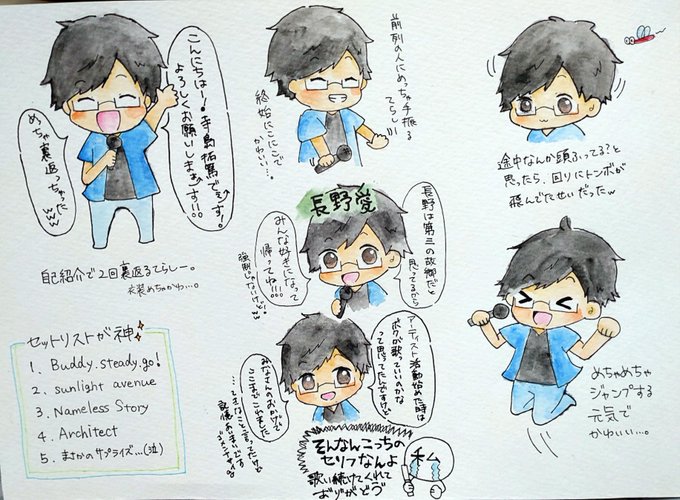 こんにちはー！寺島拓篤でぇす！
よろしくお願いしまぁす!!
めちゃ裏返っちゃった
www
自己紹介で2回裏返るてらしー。
衣装めちゃかわ…。
前列の人にめっちゃ手振る
てらしー
終始にこにこで
かわいい…。
途中なんか頭ふってる?と
思ったら、回りにトンボが
飛んでたせいだったw
長野愛
長野は第三の故郷だと
思ってるから
みんな好きになって
帰ってね!!!
強制じゃないけどww
アーティスト活動始めた時は
ボクが歌っていいのかな
って思ってたんですけど
みなさんのおかげで
ここまでこれました
そんなんこっちの
セリフなんよ
歌い続けてくれて
ありがどう
私
めちゃめちゃ
ジャンプする
元気で
かわいい…。
セットリストが神
1. Buddy.steady.go!
2. sunlight avenue
3. Nameless Story
4. Architect
5. まさかのサプライズ…(泣)